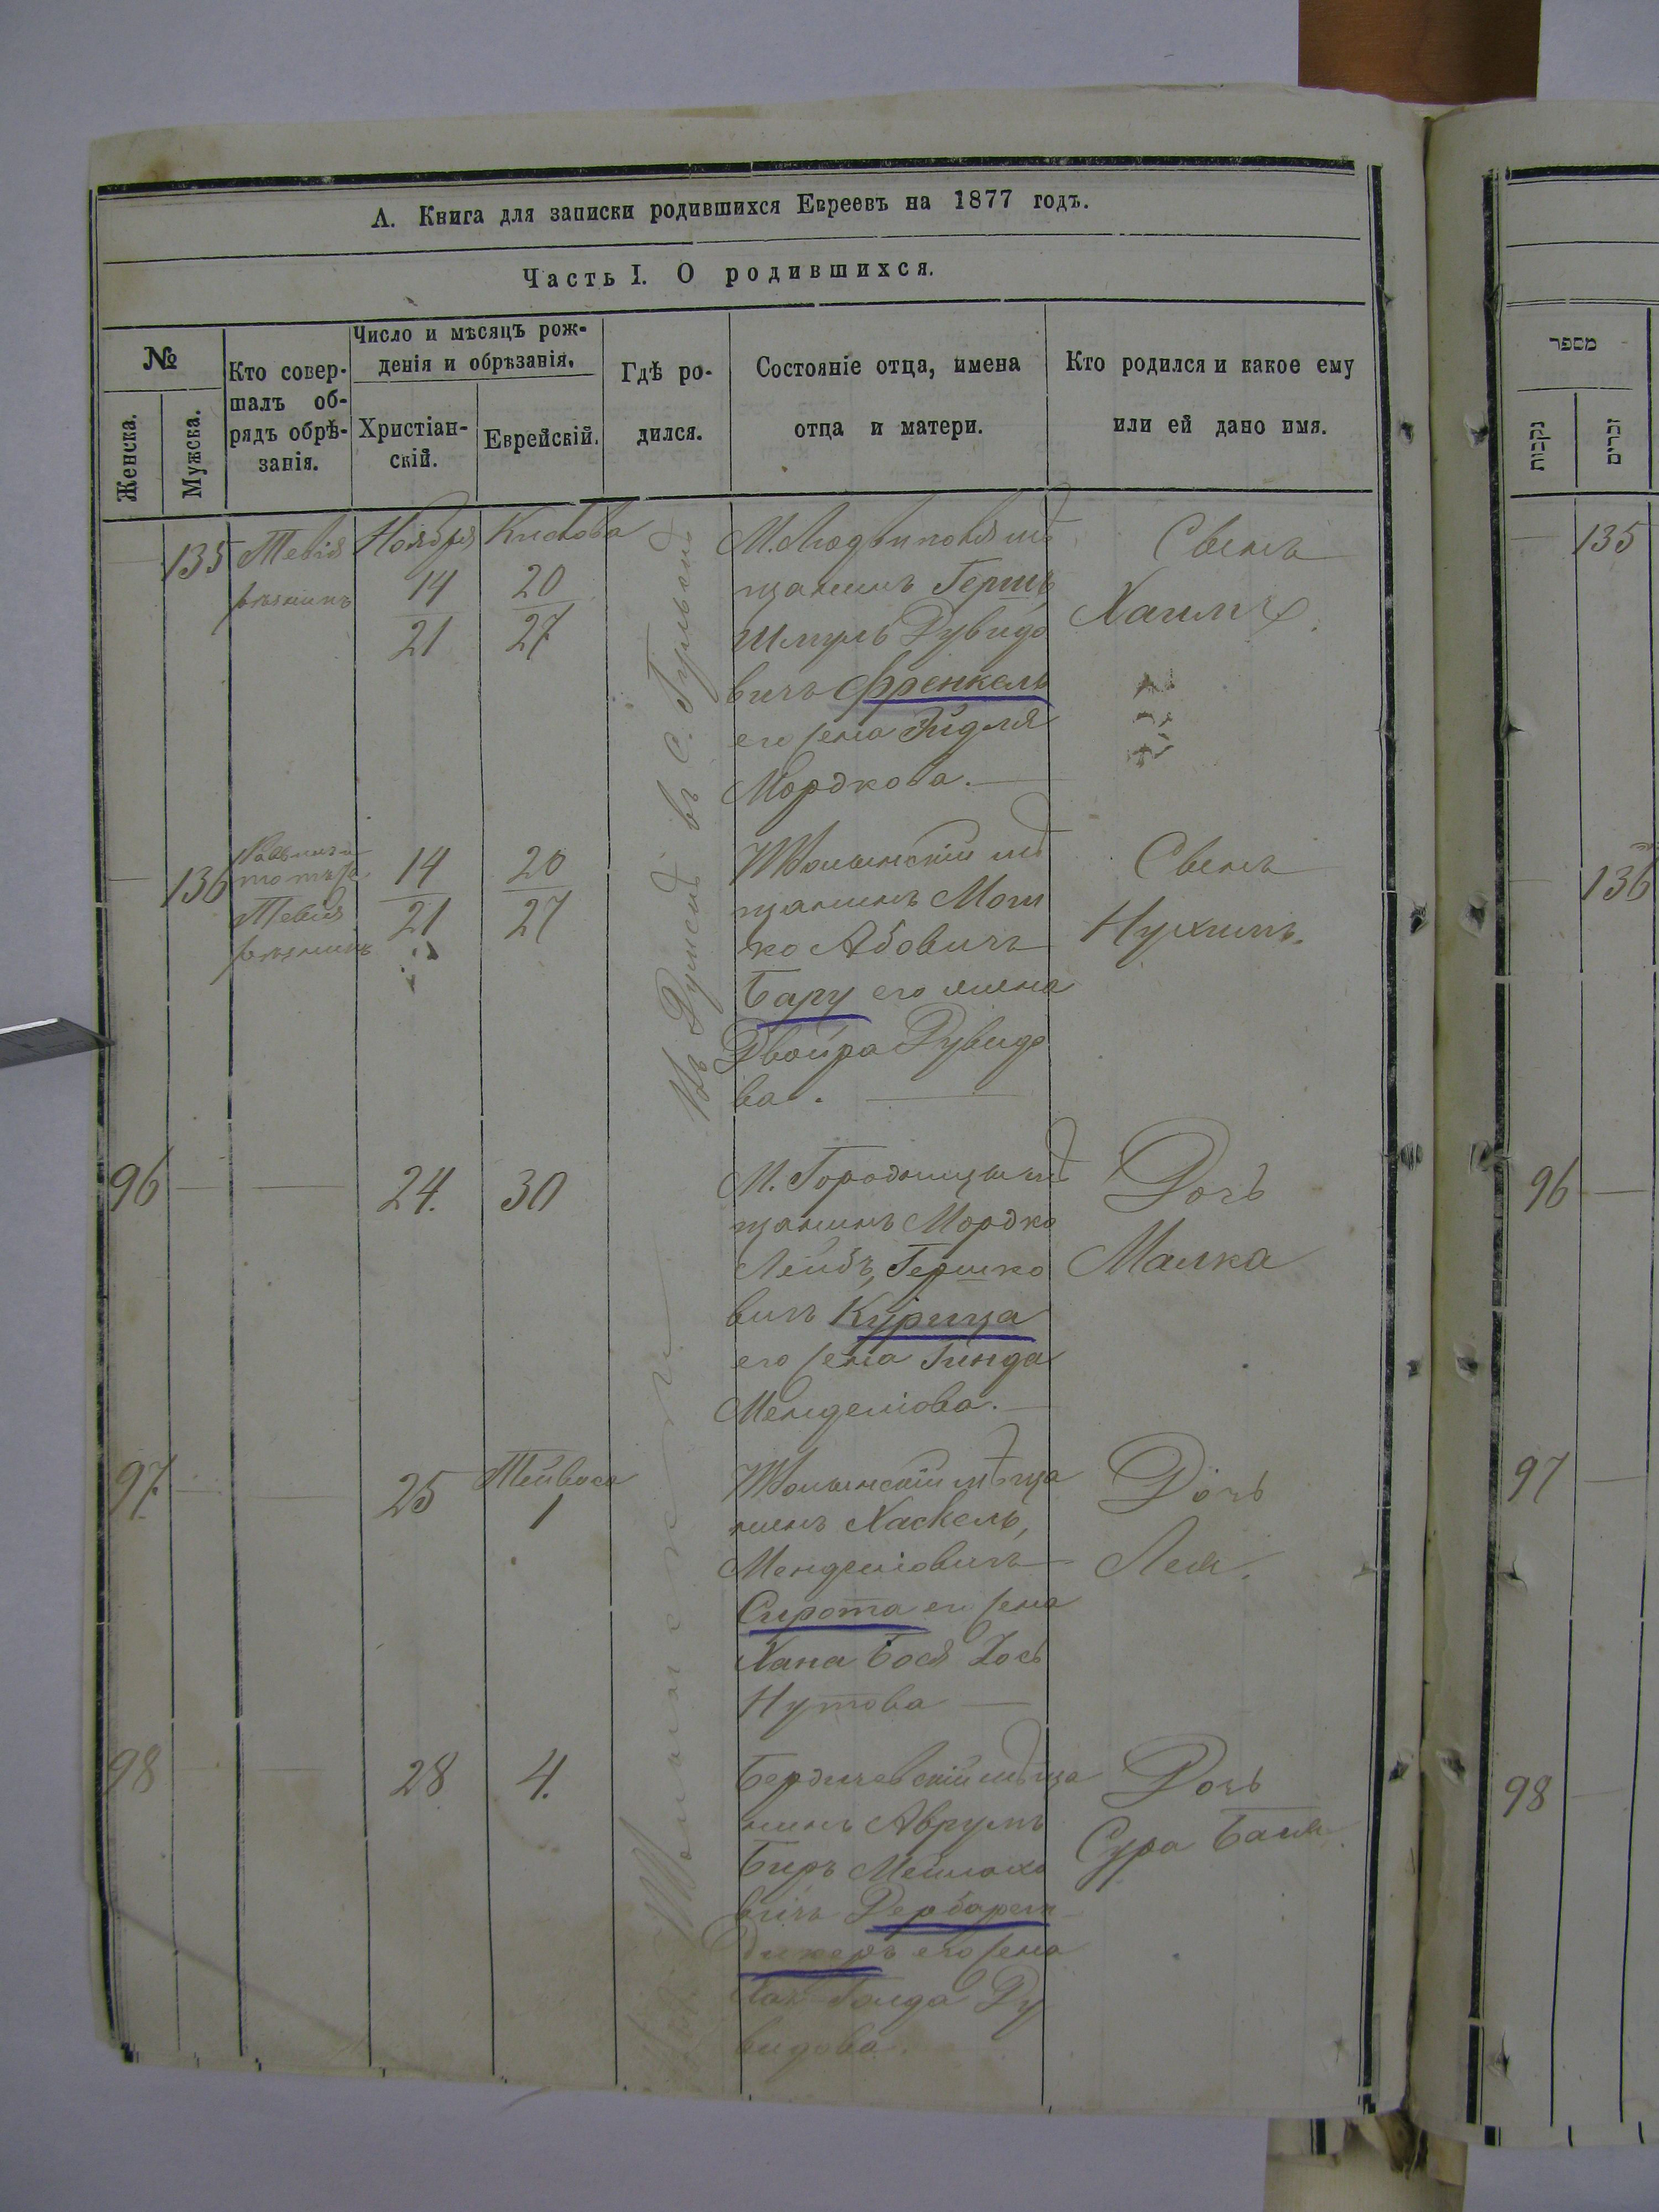 А. Книга для записки родившихся Евреевъ на 1877 годъ.
Часть I. О родившихся.
№
Женска.
Мужска.
Кто совер-
шалъ об-
рядъ обрѣ-
занія.
Число и мѣсяцъ рож-
денія и обрѣзанія.
Христіан-
скій.
Еврейскій.
Гдѣ ро-
дился.
Состояніе отца, имена
отца и матери.
Кто родился и какое ему
или ей дано имя.
135 Тевія Ноября Кислова
14 20
21 27
М. Людвиполя мѣ
щанинъ Герш
Шмуль Рувидо
вичъ Френкель
его жена Эйдля
Мордкова.
Сынъ
Хаимъ
136
Тевія
14 20
21 27
Жолынскій мѣ
щанинъ Мош
ко Абовичъ
Бару его жена
Двойра Рувидо
ва.
Сынъ
Нухимъ.
96 24. 30
М. Городницы мѣ
щанинъ Мордко
Лейбъ Гершко
вичъ Курица
его жена Гинда
Менделіова.
Дочь
Малка
97. 25 Тейвеса
1
Жолынскій мѣща
нинъ Хаскель,
Менделіовичъ
Сирота его жена
Хана Бося Іось
Нутова
Дочь
Лея.
98 28 4.
Бердичевскій мѣща
нинъ Аврумъ
Беръ Мейлахо
вичъ Дербарем
дикеръ его жена
Голда Ру
видова.
Дочь
Сура Бася
מספר
נקבות
זכרים
135
136
96
97
98